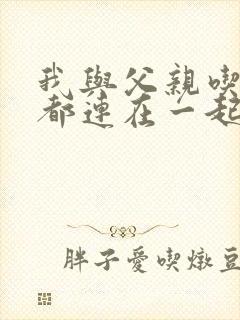 我與父親喫
都連在一起
胖子愛喫燉豆